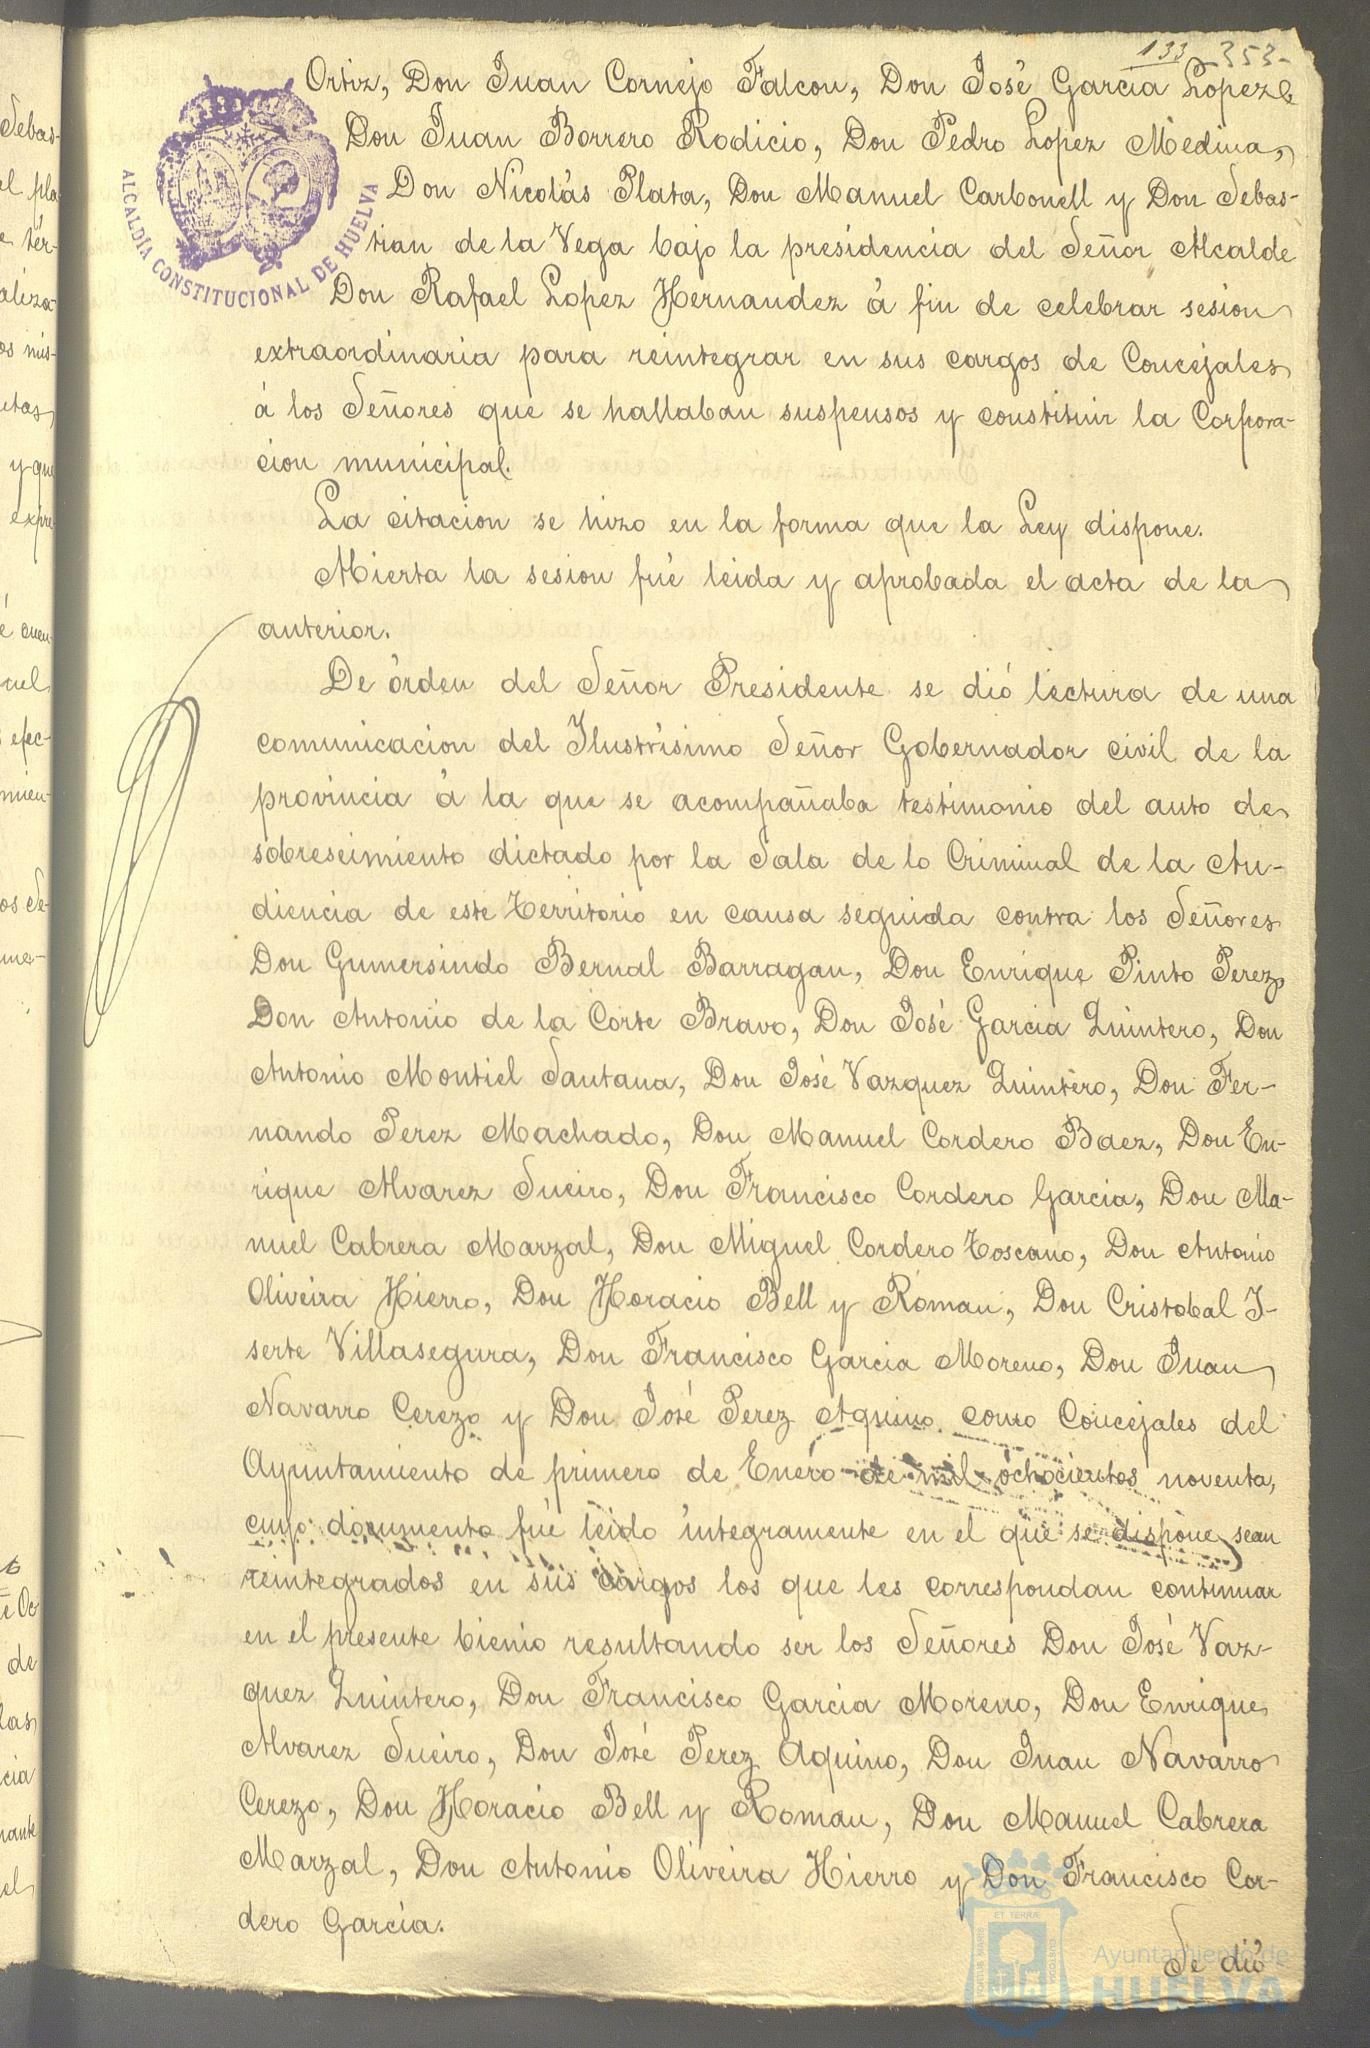 133 353-
Ortiz, Don Juan Cornejo Falcon, Don José Garcia Lopez
Don Juan Borrero Rodicio, Don Pedro Lopez Medina,
Don Nicolás Plata, Don Manuel Carbonell y Don Sebas-
tian de la Vega bajo la presidencia del Señor Alcalde
Don Rafael Lopez Hernandez á fin de celebrar sesion
extraordinaria para reintegrar en sus cargos de Concejales
á los Señores que se hallaban suspensos y constituir la Corpora-
cion municipal.
La citacion se hizo en la forma que la Ley dispone.
Abierta la sesion fué leida y aprobada el acta de la
anterior.
De órden del Señor Presidente se dió lectura de una
comunicacion del Ilustrísimo Señor Gobernador civil de la
provincia á la que se acompañaba testimonio del auto de
sobreseimiento dictado por la Sala de lo Criminal de la Au-
diencia de este Territorio en causa seguida contra los Señores
Don Gumersindo Bernal Barragan, Don Enrique Pinto Perez,
Don Antonio de la Corte Bravo, Don José Garcia Quintero, Don
Antonio Montiel Santana, Don José Vazquez Quintero, Don Fer-
nando Perez Machado, Don Manuel Cordero Baez, Don En-
rique Alvarez Sueiro, Don Francisco Cordero Garcia, Don Ma-
nuel Cabrera Marzal, Don Miguel Cordero Toscano, Don Antonio
Oliveira Hierro, Don Horacio Bell y Roman, Don Cristobal I-
serte Villasegura, Don Francisco Garcia Moreno, Don Juan
Navarro Cerezo y Don José Perez Aquino como Concejales del
Ayuntamiento de primero de Enero de mil ochocientos noventa,
cuyo documento fué leido íntegramente en el que se dispone sean
reintegrados en sus cargos los que les correspondan continuar
en el presente bienio resultando ser los Señores Don José Vaz-
quez Quintero, Don Francisco Garcia Moreno, Don Enrique
Alvarez Sueiro, Don José Perez Aquino, Don Juan Navarro
Cerezo, Don Horacio Bell y Roman, Don Manuel Cabrera
Marzal, Don Antonio Oliveira Hierro y Don Francisco Cor-
dero Garcia.
Se dió
ALCALDÍA CONSTITUCIONAL DE HUELVA
Ayuntamiento de
HUELVA